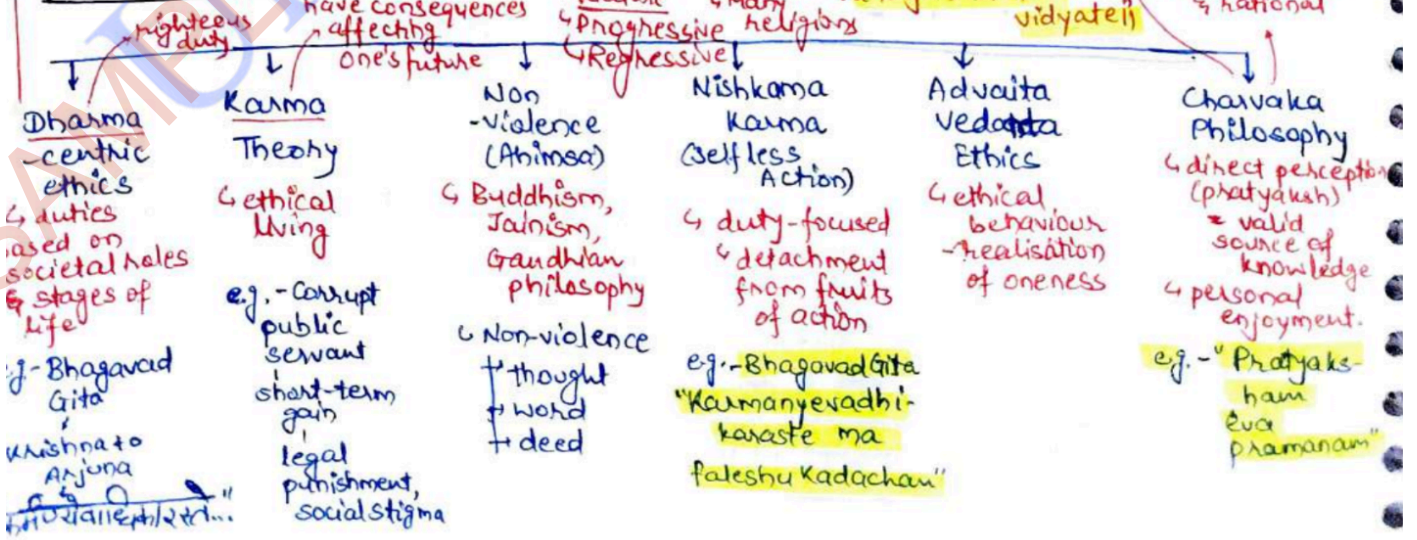 have consequences
righteous
duty
affecting
one's future
↳ Progressive
religions
↳ Regressive
vidyate॥
Dharma
-centric
ethics
↳ duties
ased on
societal roles
↳ stages of
life
g- Bhagavad
Gita
Krishna to
Arjuna
Karma
Theory
↳ ethical
living
e.g. - Corrupt
public
servant
short-term
gain
legal
punishment,
social stigma
Non
-violence
(Ahimsa)
↳ Buddhism,
Jainism,
Gandhian
philosophy
↳ Non-violence
thought
word
deed
Nishkama
Karma
(Selfless
Action)
↳ duty-focused
↳ detachment
from fruits
of action
e.g.- Bhagavad Gita
"Karmanyevadhi-
karaste ma
faleshu Kadachan"
Advaita
Vedanta
Ethics
↳ ethical
behaviour
-realisation
of oneness
Charvaka
Philosophy
↳ direct perception
(pratyaksh)
= valid
source of
knowledge
↳ personal
enjoyment.
e.g. - "Pratyaks-
ham
eva
pramanam"